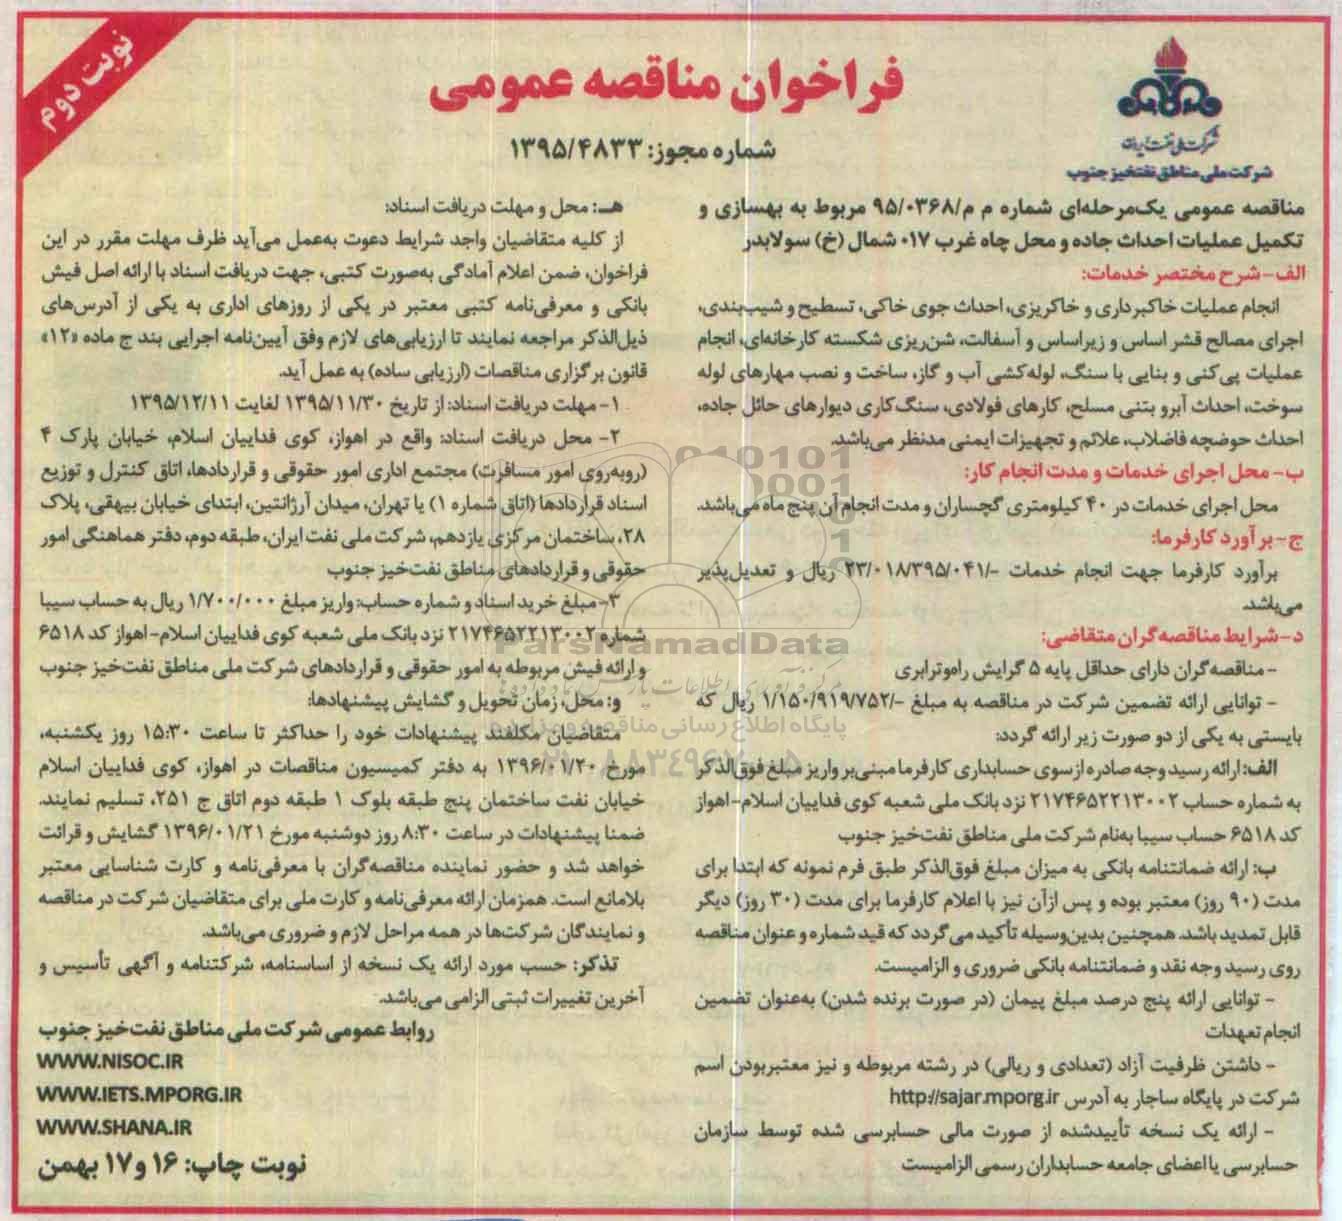 نوبت دوم
فراخوان مناقصه عمومی
شماره مجوز: ۱۳۹۵/۴۸۳۳
شرکت ملی نفت ایران
شرکت ملی مناطق نفتخیز جنوب
مناقصه عمومی یک‌مرحله‌ای شماره م م/۹۵/۰۳۶۸ مربوط به بهسازی و
تکمیل عملیات احداث جاده و محل چاه غرب ۰۱۷ شمال (خ) سولابدر
الف-شرح مختصر خدمات:
انجام عملیات خاکبرداری و خاکریزی، احداث جوی خاکی، تسطیح و شیب‌بندی،
اجرای مصالح قشر اساس و زیراساس و آسفالت، شن‌ریزی شکسته کارخانه‌ای، انجام
عملیات پی‌کنی و بنایی با سنگ، لوله‌کشی آب و گاز، ساخت و نصب مهارهای لوله
سوخت، احداث آبرو بتنی مسلح، کارهای فولادی، سنگ‌کاری دیوارهای حائل جاده،
احداث حوضچه فاضلاب، علائم و تجهیزات ایمنی مدنظر می‌باشد.
ب- محل اجرای خدمات و مدت انجام کار:
محل اجرای خدمات در ۴۰ کیلومتری گچساران و مدت انجام آن پنج ماه می‌باشد.
ج-برآورد کارفرما:
برآورد کارفرما جهت انجام خدمات -/۲۳/۰۱۸/۳۹۵/۰۴۱ ریال و تعدیل‌پذیر
می‌باشد.
د-شرایط مناقصه‌گران متقاضی:
- مناقصه‌گران دارای حداقل پایه ۵ گرایش راه‌وترابری
- توانایی ارائه تضمین شرکت در مناقصه به مبلغ -/۱/۱۵۰/۹۱۹/۷۵۲ ریال که
بایستی به یکی از دو صورت زیر ارائه گردد:
الف: ارائه رسید وجه صادره از سوی حسابداری کارفرما مبنی‌بر واریز مبلغ فوق‌الذکر
به شماره حساب ۲۱۷۴۶۵۲۲۱۳۰۰۲ نزد بانک ملی شعبه کوی فداییان اسلام-اهواز
کد ۶۵۱۸ حساب سیبا به‌نام شرکت ملی مناطق نفت‌خیز جنوب
ب: ارائه ضمانتنامه بانکی به میزان مبلغ فوق‌الذکر طبق فرم نمونه که ابتدا برای
مدت (۹۰ روز) معتبر بوده و پس ازآن نیز با اعلام کارفرما برای مدت (۳۰ روز) دیگر
قابل تمدید باشد. همچنین بدین‌وسیله تأکید می‌گردد که قید شماره و عنوان مناقصه
روی رسید وجه نقد و ضمانتنامه بانکی ضروری و الزامیست.
- توانایی ارائه پنج درصد مبلغ پیمان (در صورت برنده شدن) به‌عنوان تضمین
انجام تعهدات
- داشتن ظرفیت آزاد (تعدادی و ریالی) در رشته مربوطه و نیز معتبربودن اسم
شرکت در پایگاه ساجار به آدرس http://sajar.mporg.ir
- ارائه یک نسخه تأییدشده از صورت مالی حسابرسی شده توسط سازمان
حسابرسی یا اعضای جامعه حسابداران رسمی الزامیست
هـ: محل و مهلت دریافت اسناد:
از کلیه متقاضیان واجد شرایط دعوت به‌عمل می‌آید ظرف مهلت مقرر در این
فراخوان، ضمن اعلام آمادگی به‌صورت کتبی، جهت دریافت اسناد با ارائه اصل فیش
بانکی و معرفی‌نامه کتبی معتبر در یکی از روزهای اداری به یکی از آدرس‌های
ذیل‌الذکر مراجعه نمایند تا ارزیابی‌های لازم وفق آیین‌نامه اجرایی بند ج ماده «۱۲»
قانون برگزاری مناقصات (ارزیابی ساده) به عمل آید.
۱- مهلت دریافت اسناد: از تاریخ ۱۳۹۵/۱۱/۳۰ لغایت ۱۳۹۵/۱۲/۱۱
۲- محل دریافت اسناد: واقع در اهواز، کوی فداییان اسلام، خیابان پارک ۴
(روبه‌روی امور مسافرت) مجتمع اداری امور حقوقی و قراردادها، اتاق کنترل و توزیع
اسناد قراردادها (اتاق شماره ۱) یا تهران، میدان آرژانتین، ابتدای خیابان بیهقی، پلاک
۲۸، ساختمان مرکزی یازدهم، شرکت ملی نفت ایران، طبقه دوم، دفتر هماهنگی امور
حقوقی و قراردادهای مناطق نفت‌خیز جنوب
۳- مبلغ خرید اسناد و شماره حساب: واریز مبلغ ۱/۷۰۰/۰۰۰ ریال به حساب سیبا
شماره ۲۱۷۴۶۵۲۲۱۳۰۰۲ نزد بانک ملی شعبه کوی فداییان اسلام-اهواز کد ۶۵۱۸
و ارائه فیش مربوطه به امور حقوقی و قراردادهای شرکت ملی مناطق نفت‌خیز جنوب
و: محل، زمان تحویل و گشایش پیشنهادها:
متقاضیان مکلفند پیشنهادات خود را حداکثر تا ساعت ۱۵:۳۰ روز یکشنبه،
مورخ ۱۳۹۶/۰۱/۲۰ به دفتر کمیسیون مناقصات در اهواز، کوی فداییان اسلام
خیابان نفت ساختمان پنج طبقه بلوک ۱ طبقه دوم اتاق ج ۲۵۱، تسلیم نمایند.
ضمنا پیشنهادات در ساعت ۸:۳۰ روز دوشنبه مورخ ۱۳۹۶/۰۱/۲۱ گشایش و قرائت
خواهد شد و حضور نماینده مناقصه‌گران با معرفی‌نامه و کارت شناسایی معتبر
بلامانع است. همزمان ارائه معرفی‌نامه و کارت ملی برای متقاضیان شرکت در مناقصه
و نمایندگان شرکت‌ها در همه مراحل لازم و ضروری می‌باشد.
تذکر: حسب مورد ارائه یک نسخه از اساسنامه، شرکتنامه و آگهی تأسیس و
آخرین تغییرات ثبتی الزامی می‌باشد.
روابط عمومی شرکت ملی مناطق نفت‌خیز جنوب
WWW.NISOC.IR
WWW.IETS.MPORG.IR
WWW.SHANA.IR
نوبت چاپ: ۱۶ و ۱۷ بهمن
ParsNamadData
پایگاه اطلاع رسانی مناقصه و مزایده